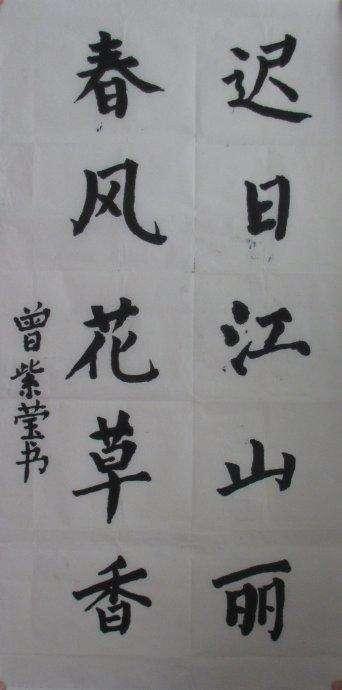 迟日江山丽
春风花草香
曾紫莹书